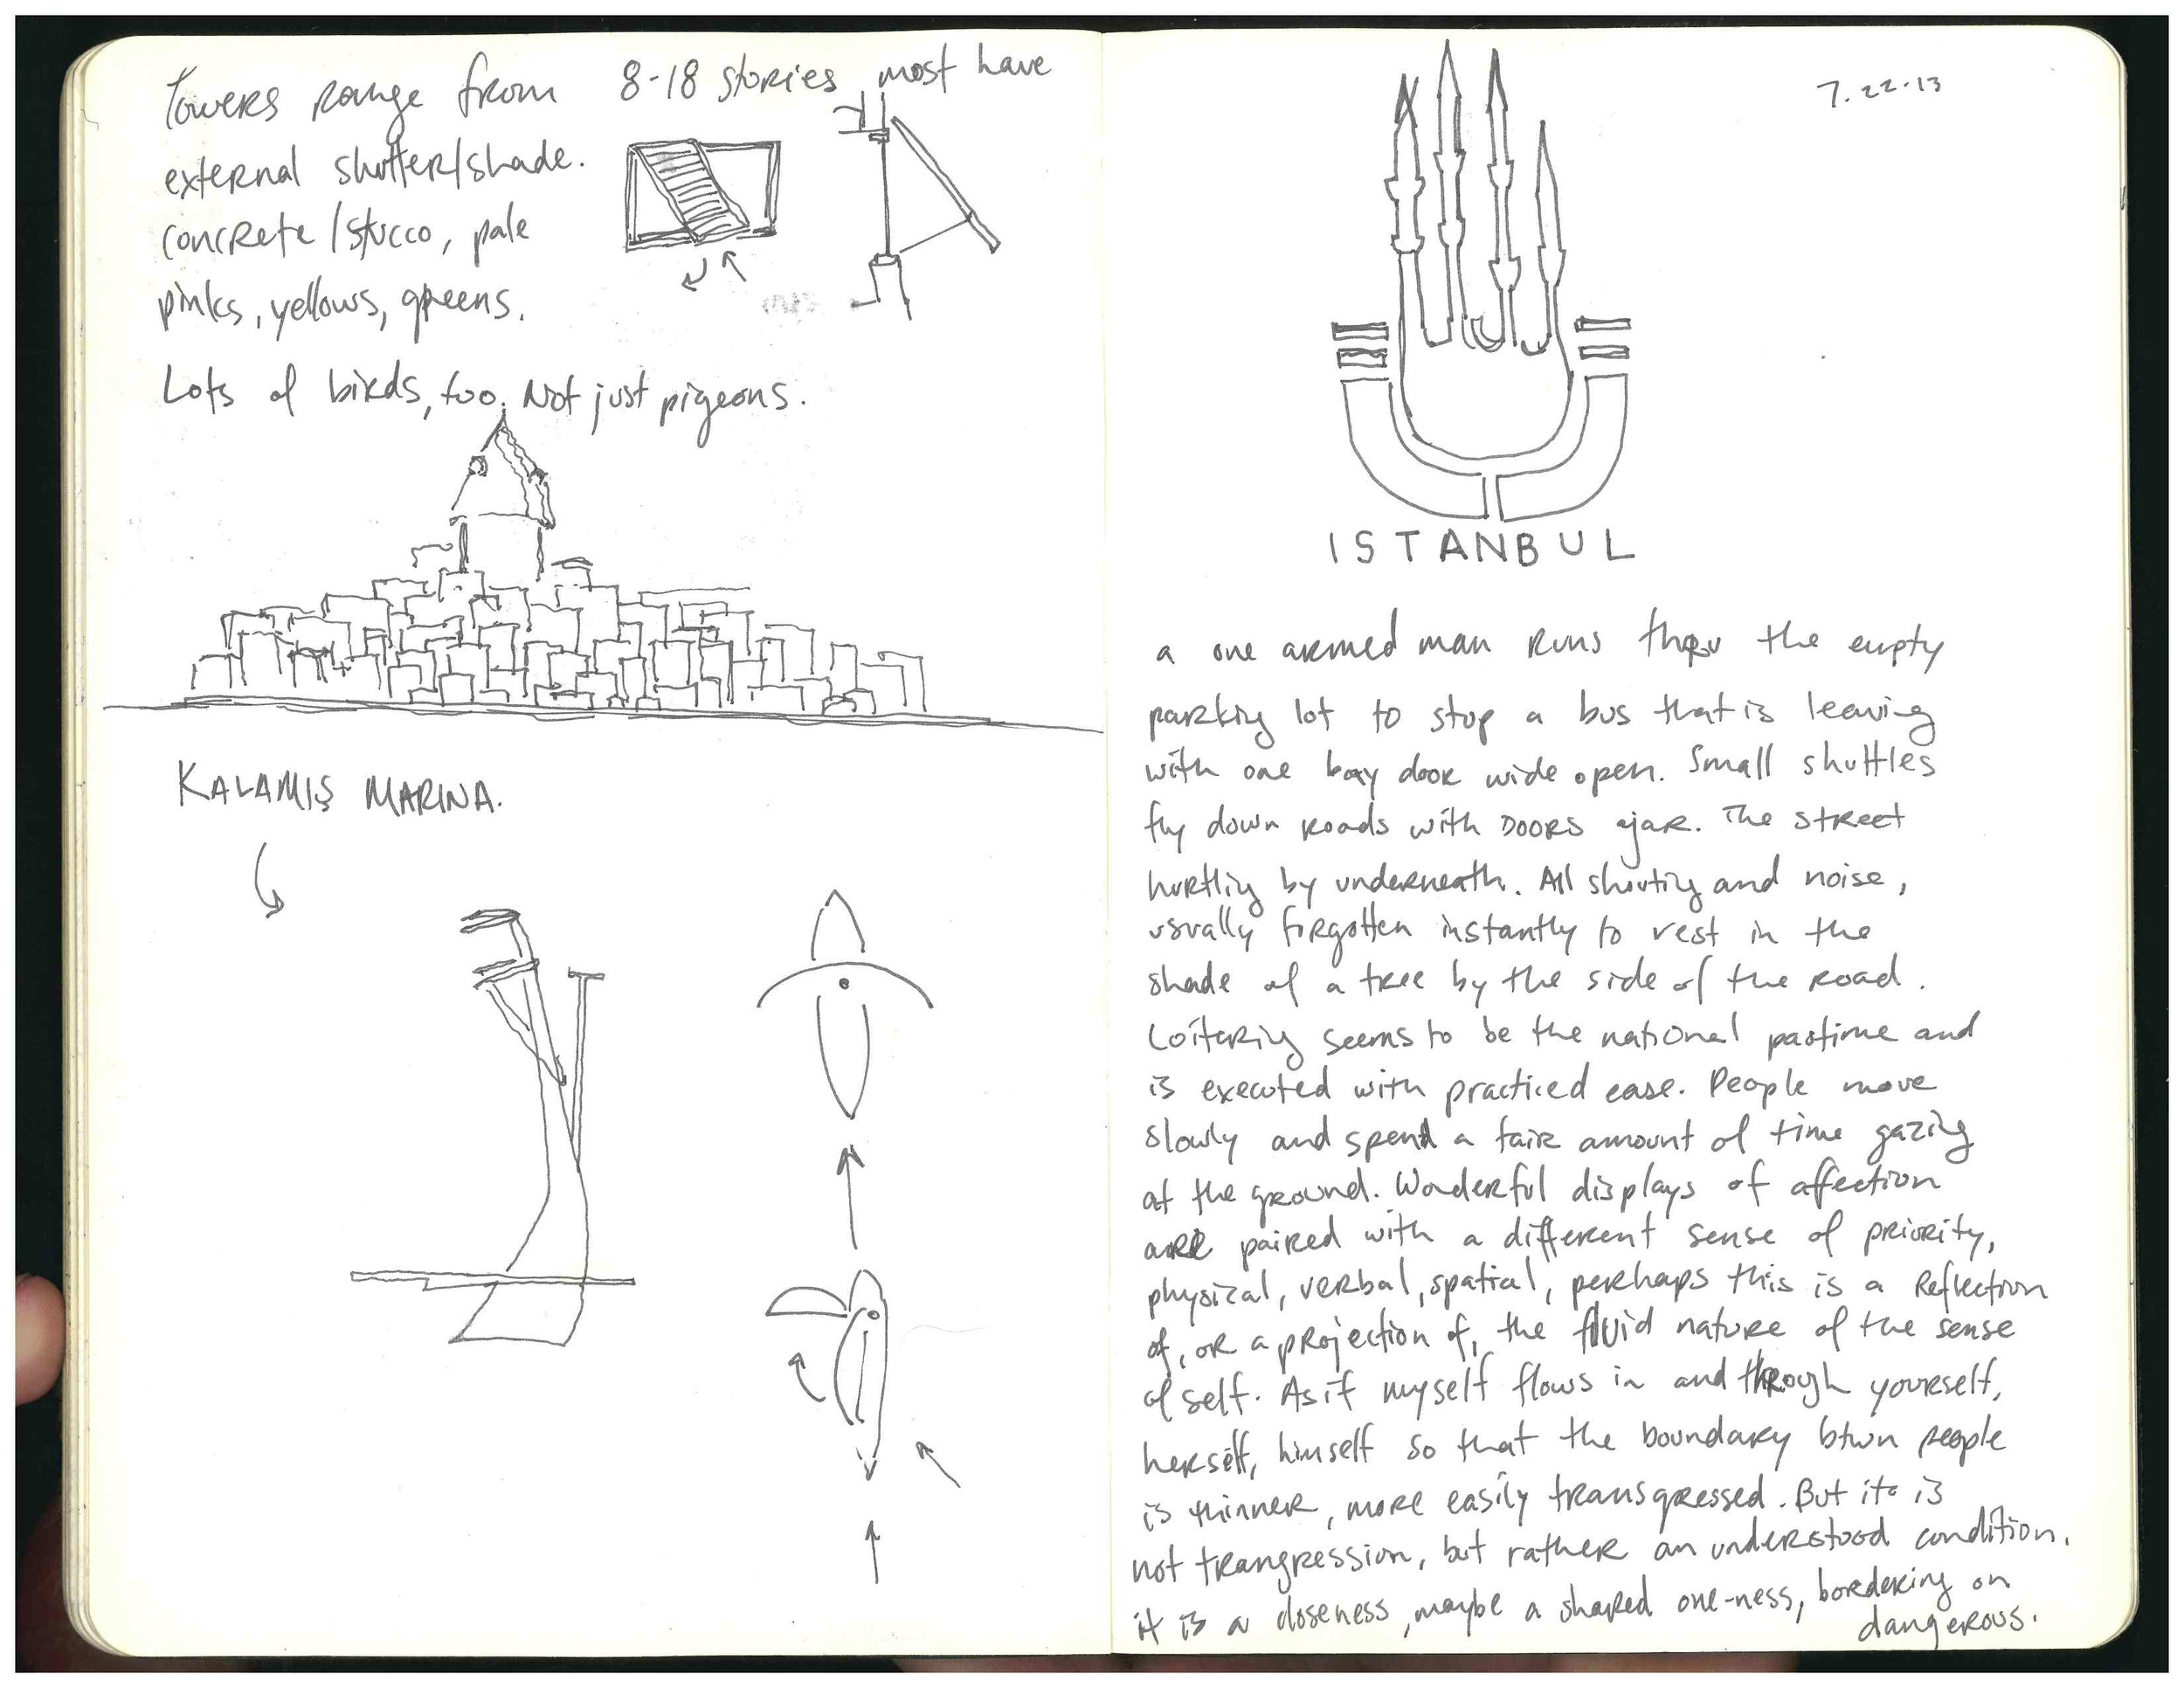 Towers range from 8-18 stories most have
external shutter/shade.
concrete/stucco, pale
pinks, yellows, greens.
Lots of birds, too. Not just pigeons.
KALAMIŞ MARINA.
7.22.13
ISTANBUL
a one armed man runs thru the empty
parking lot to stop a bus that is leaving
with one bay door wide open. Small shuttles
fly down roads with DOORS ajar. The street
hurtling by underneath. All shouting and noise,
usually forgotten instantly to rest in the
shade of a tree by the side of the road.
Loitering seems to be the national pastime and
is executed with practiced ease. People move
slowly and spend a fair amount of time gazing
at the ground. Wonderful displays of affection
are paired with a different sense of priority,
physical, verbal, spatial, perhaps this is a reflection
of, or a projection of, the fluid nature of the sense
of self. As if myself flows in and through yourself,
herself, himself so that the boundary btwn people
is thinner, more easily transgressed. But it is
not trangression, but rather an understood condition.
it is a closeness, maybe a shared one-ness, bordering on
dangerous.